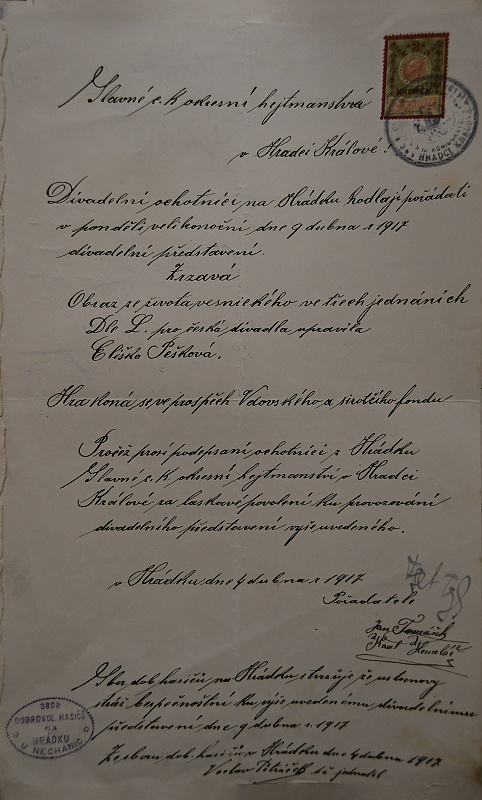 Slavné c. k. okresní hejtmanství
v Hradci Králové!
Divadelní ochotníci na Hrádku hodlají pořádati
v pondělí velikonoční dne 9 dubna r 1917
divadelní představení.
Zrzavá
Obraz ze života vesnického ve třech jednáních
Dle L. pro česká divadla upravila
Eliška Pešková.
Hra koná se ve prospěch Vdovského a sirotčího fondu
Pročež prosí podepsaní ochotníci z Hrádku
Slavné c. k. okresní hejtmanství v Hradci
Králové za laskavé povolení ku provozování
divadelního představení výše uvedeného.
v Hrádku dne 4 dubna r 1917
Pořadatelé
Jan Tomášek
Karel
Sbor dob. hasičů na Hrádku stvrzuje že ustanoví
stráž bezpečnostní ku výše uvedenému divadelnímu
představení dne 9 dubna r. 1917
Ze sboru dob. hasičů v Hrádku dne 4 dubna 1917
jednatel
SBOR
DOBROVOL. HASIČŮ
NA
HRÁDKU
U NECHANIC
2
KRONEN
HRADCI KRÁLOVÉ